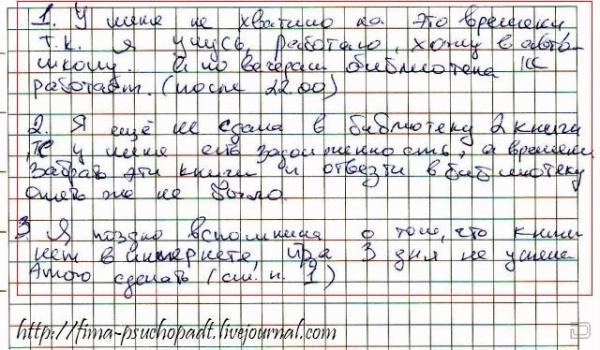 1. У меня не хватило на это времени
т.к. я учусь, работаю, хожу в авто-
школу. А по вечерам библиотека не
работает. (после 22.00)
2. Я ещё не сдала в библиотеку 2 книги
у меня ещё задолженность, а времени
забрать эти книги и отвезти в библиотеку
опять же не было.
3 Я поздно вспомнила о том, что книги
нет в интернете, и за 3 дня не успела
этого сделать (см. п. 1)
http://fima-psuchopadt.livejournal.com